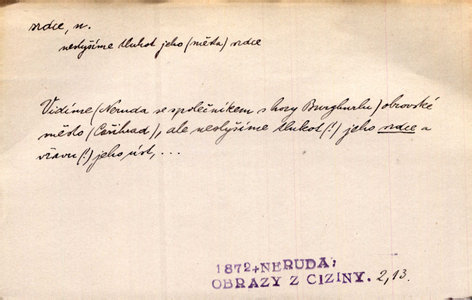 srdce, n.
neslyšíme tlukot jeho (města) srdce
Vidíme (Neruda se společníkem s hory Burghurlu) obrovské
město (Cařihrad), ale neslyšíme tlukot (!) jeho srdce a
vřavu (!) jeho úst, ...
1872+NERUDA,
OBRAZY Z CIZINY. 2,13.